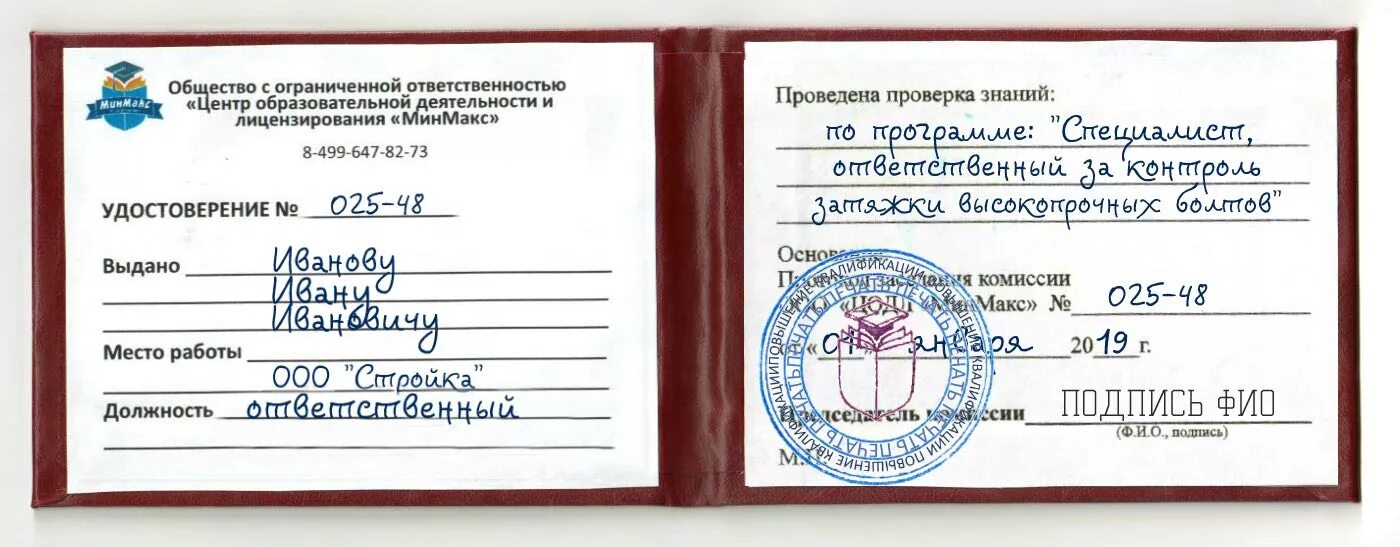 МинМакс
Общество с ограниченной ответственностью
«Центр образовательной деятельности и
лицензирования «МинМакс»
8-499-647-82-73
УДОСТОВЕРЕНИЕ № 025-48
Выдано Иванову
Ивану
Ивановичу
Место работы
ООО "Стройка"
Должность ответственный
Проведена проверка знаний:
по программе: "Специалист,
ответственный за контроль
затяжки высокопрочных болтов"
комиссии
МинМакс» № 025-48
января 2019 г.
Председатель комиссии ПОДПИСЬ ФИО
(Ф.И.О., подпись)
ПОВЫШЕНИЕ КВАЛИФИКАЦИИ ПОВЫШЕНИЕ КВАЛИФИКАЦИИ ПОВЫШЕНИЕ КВАЛИФИКАЦИИ
ПЕЧАТЬ ПЕЧАТЬ ПЕЧАТЬ ПЕЧАТЬ ПЕЧАТЬ ПЕЧАТЬ